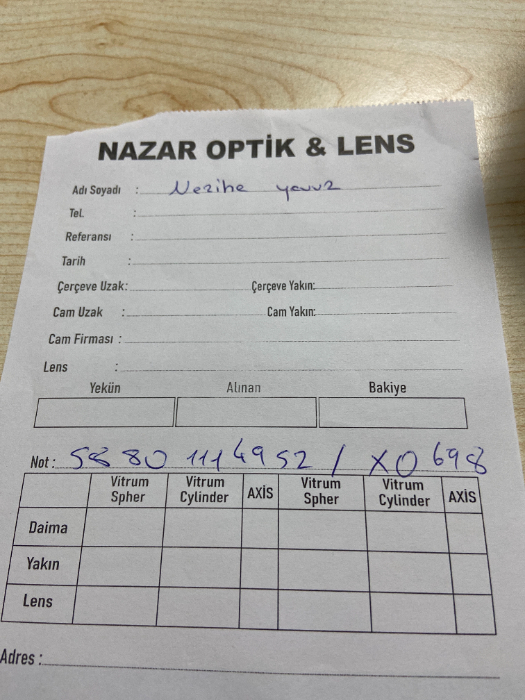 NAZAR OPTİK & LENS
Adı Soyadı : Nezihe yavuz
Tel. :
Referansı :
Tarih :
Çerçeve Uzak: Çerçeve Yakın:
Cam Uzak : Cam Yakın:
Cam Firması :
Lens :
Yekün Alınan Bakiye
Not : 5880 1114952 / XO698
Vitrum Spher Vitrum Cylinder AXİS Vitrum Spher Vitrum Cylinder AXİS
Daima
Yakın
Lens
Adres :